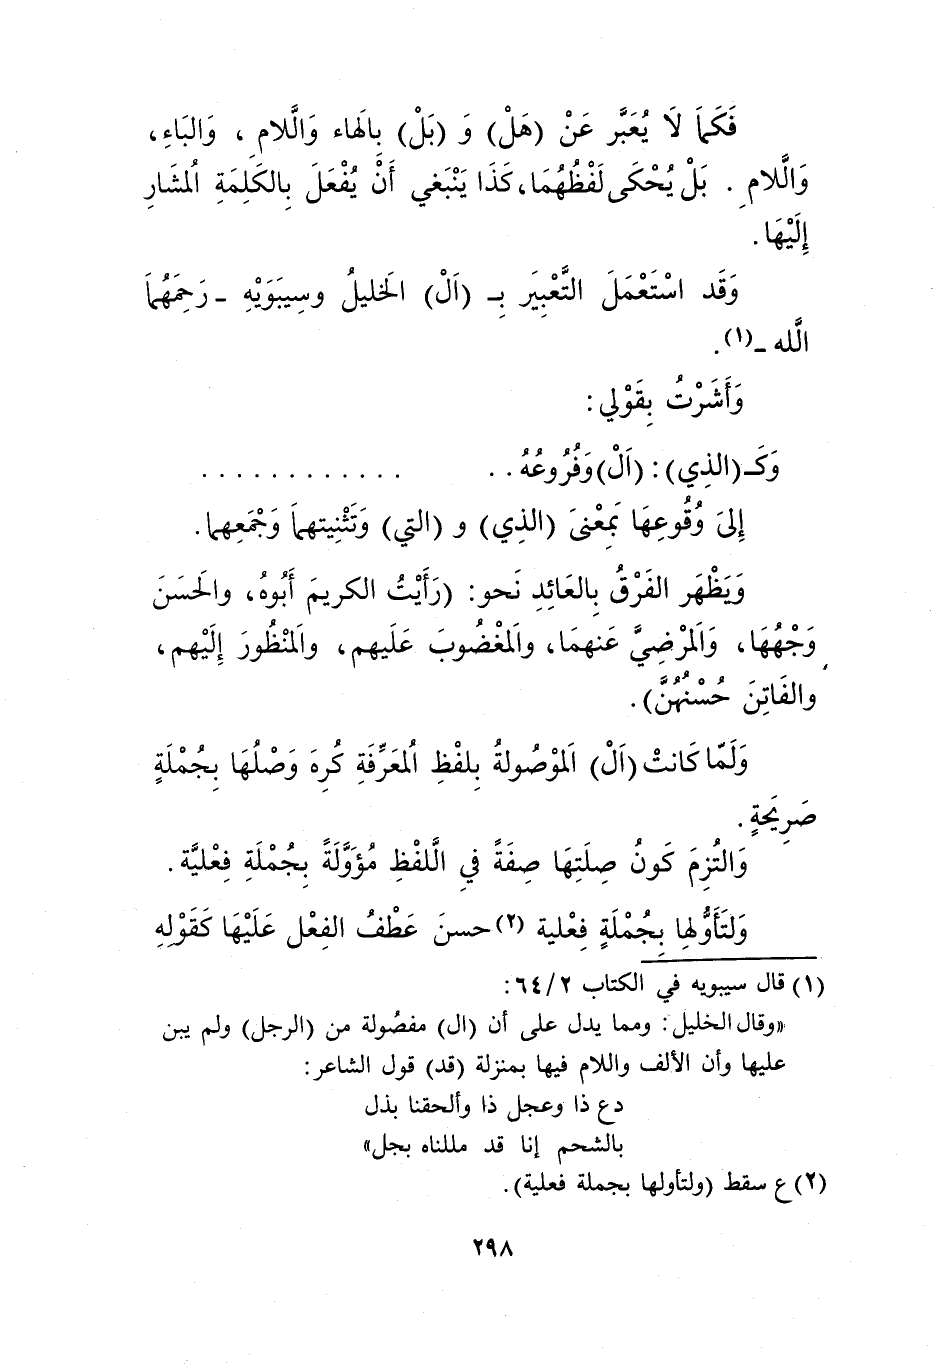 فَكَمَا لَا يُعَبَّر عَنْ (هَلْ) وَ (بَلْ) بِالهَاء وَالَّلامِ ، وَالبَاءِ،
وَالَّلامِ . بَلْ يُحْكَى لَفْظُهُمَا، كَذَا يَنْبَغي أَنْ يُفْعَلَ بِالكَلِمَةِ المُشَارِ
إِلَيْهَا.
وَقَد اسْتَعْمَلَ التَّعْبِيَر بِـ (اَلْ) الخَليلُ وسِيبَوَيْهِ ـ رَحِمَهُمَا
الَّله ـ(١).
وَأَشَرْتُ بِقَوْلي:
وَكَـ (الذِي): (اَلْ) وَفُرُوعُهُ . . . . . . . . . . . . . .
إِلىَ وُقُوعِهَا بَمِعْنىَ (الذِي) و (التي) وَتَثْنِيتهمِاَ وَجْمَعِهمِا.
وَيَظْهَر الفَرْقُ بِالعَائِدِ نَحو: (رَأَيْتُ الكريمَ أَبُوهُ، والحَسَنَ
وَجْهُهَا، وَالَمرْضِيَّ عَنهمَا، والَمغْضُوبَ عَلَيهم، والَمنْظُورَ إِلَيْهم،
والفَاتِنَ حُسْنُهُنَّ).
وَلَمّا كَانتْ (اَلْ) الَموْصُولةُ بِلفْظِ الُمعَرِّفَةِ كُرِهَ وَصْلُهَا بِجُمْلَةٍ
صَرِيَحةٍ .
وَالتُزِمَ كَونُ صِلَتِهَا صِفَةً فيِ الَّلفْظِ مُؤَوَّلَةً بِجُمْلَةِ فِعْليَّة.
وَلتَأَوُّلهِا بِجُمْلَةٍ فِعْلية (٢) حسنَ عَطْفُ الفِعْل عَلَيْهَا كَقَوْلِهِ
(١) قال سيبويه في الكتاب ٦٤/٢:
«وقال الخليل: ومما يدل على أن (ال) مفصُولة من (الرجل) ولم يبن
عليها وأن الألف واللام فيها بمنزلة (قد) قول الشاعر:
دع ذا وعجل ذا وألحقنا بذل
بالشحم إنا قد مللناه بجل»
(٢) ع سقط (ولتأولها بجملة فعلية).
٢٩٨